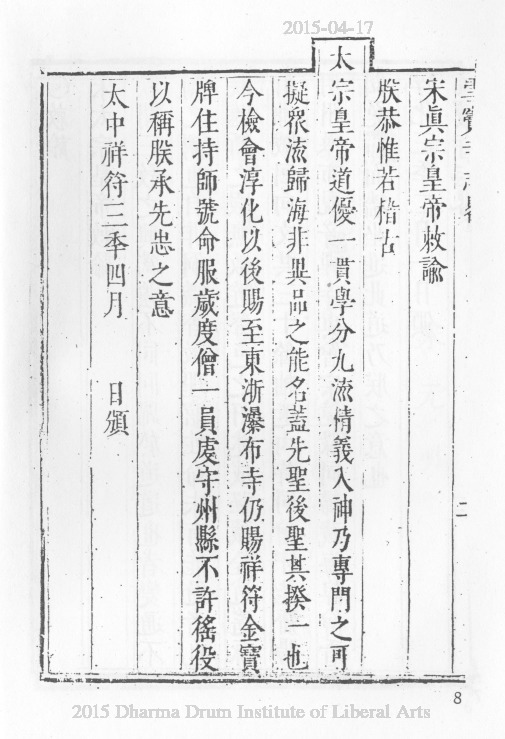 2015-04-17
雪竇寺志畧
宋眞宗皇帝敕諭
朕恭惟若稽古
太宗皇帝道優一貫學分九流情義入神乃專門之可
擬衆流歸海非異品之能名蓋先聖後聖其揆一也
今檢會淳化以後賜至東浙瀑布寺仍賜祥符金寶
牌住持師號命服歲度僧一員虔守州縣不許徭役
以稱朕承先忠之意
太中祥符三年四月　　日頒
二
8
2015 Dharma Drum Institute of Liberal Arts